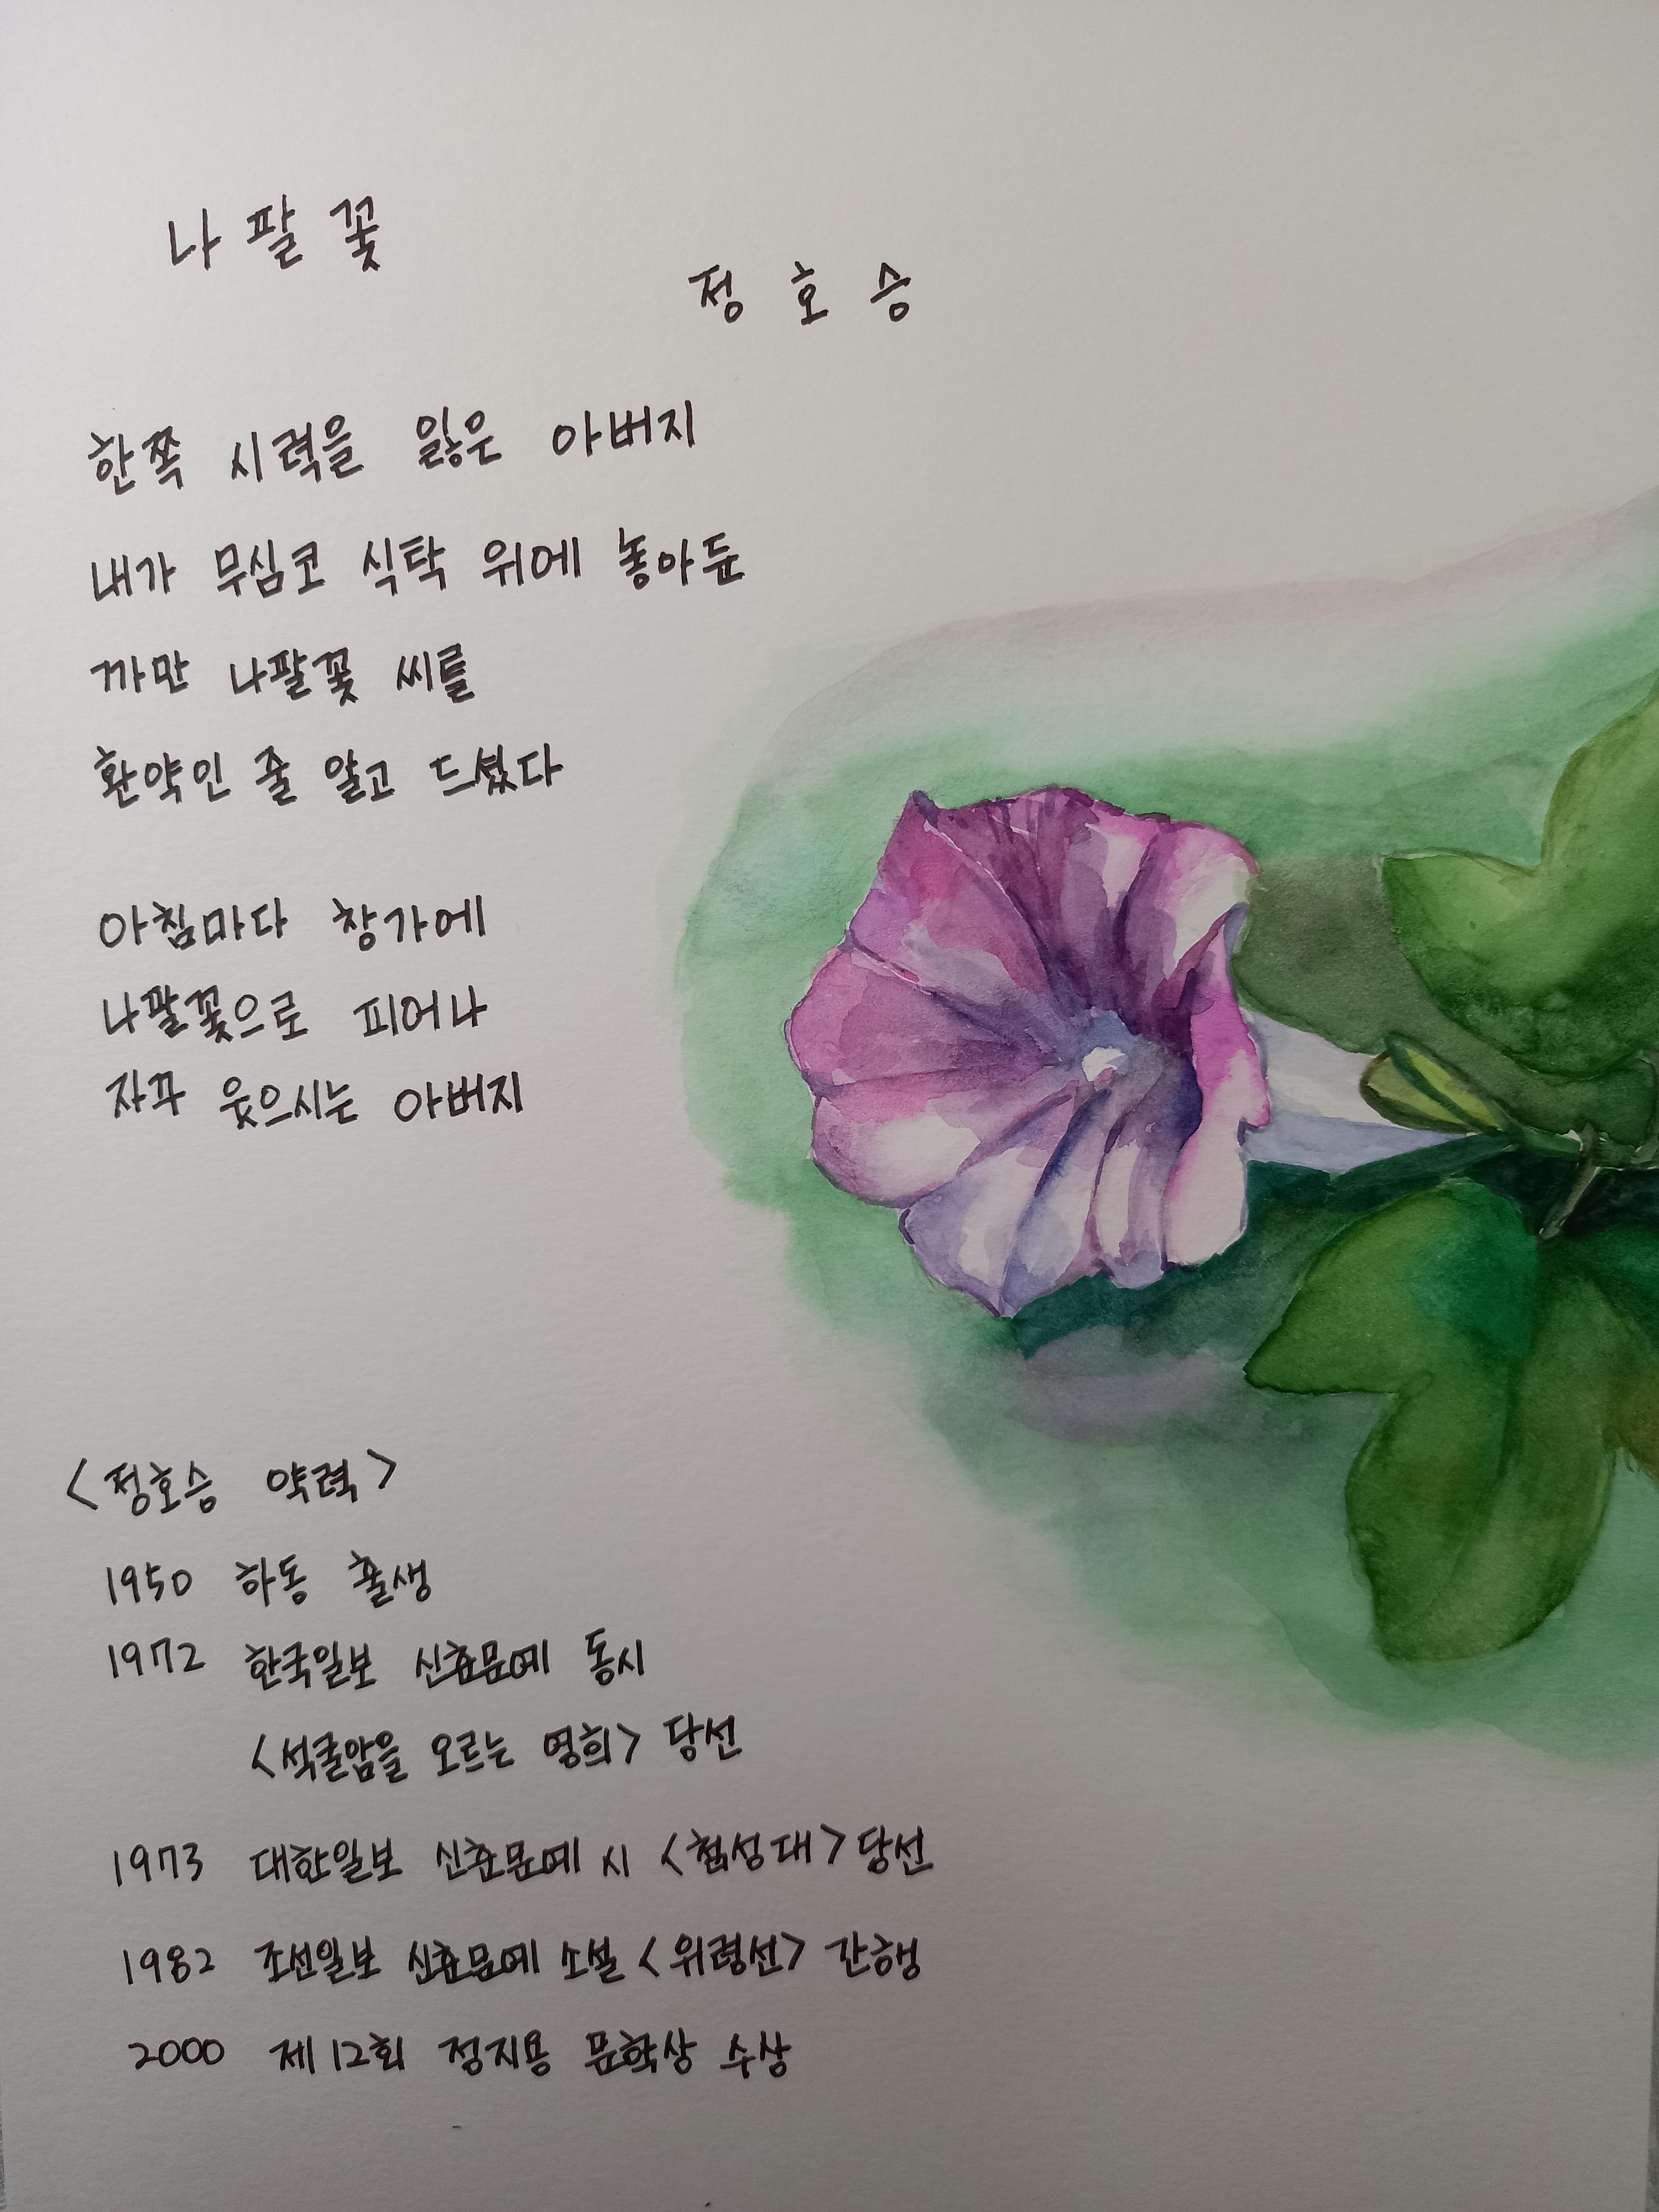 나팔꽃
정호승
한쪽 시력을 잃은 아버지
내가 무심코 식탁 위에 놓아둔
까만 나팔꽃 씨를
환약인 줄 알고 드셨다
아침마다 창가에
나팔꽃으로 피어나
자꾸 웃으시는 아버지
<정호승 약력>
1950 하동 출생
1972 한국일보 신춘문예 동시
<석굴암을 오르는 영희> 당선
1973 대한일보 신춘문예 시 <첨성대> 당선
1982 조선일보 신춘문예 소설 <위령선> 간행
2000 제12회 정지용 문학상 수상